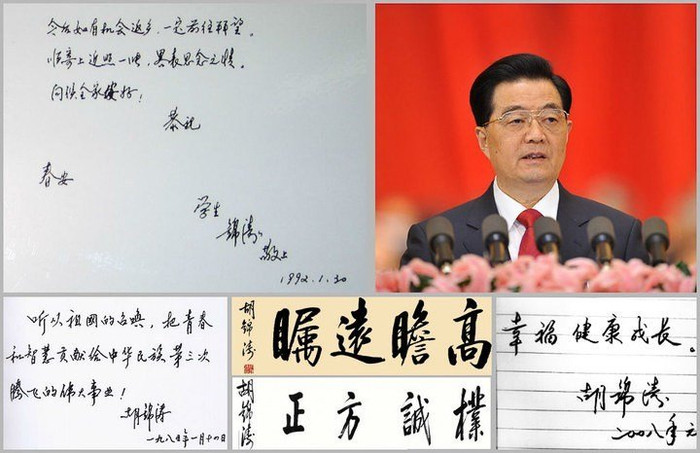 今后如有机会返乡,一定前往拜望。
顺寄上近照一帧,畧表思念之情。
问候全家安好!
恭祝
春安
学生
锦涛
敬上
1992.1.30
听从祖国的召唤,把青春
和智慧贡献给中华民族第三次
腾飞的伟大事业!
胡锦涛
一九八五年一月十四日
高瞻遠瞩
胡锦涛
樸誠方正
胡锦涛
幸福健康成长。
胡锦涛
二〇〇八年元